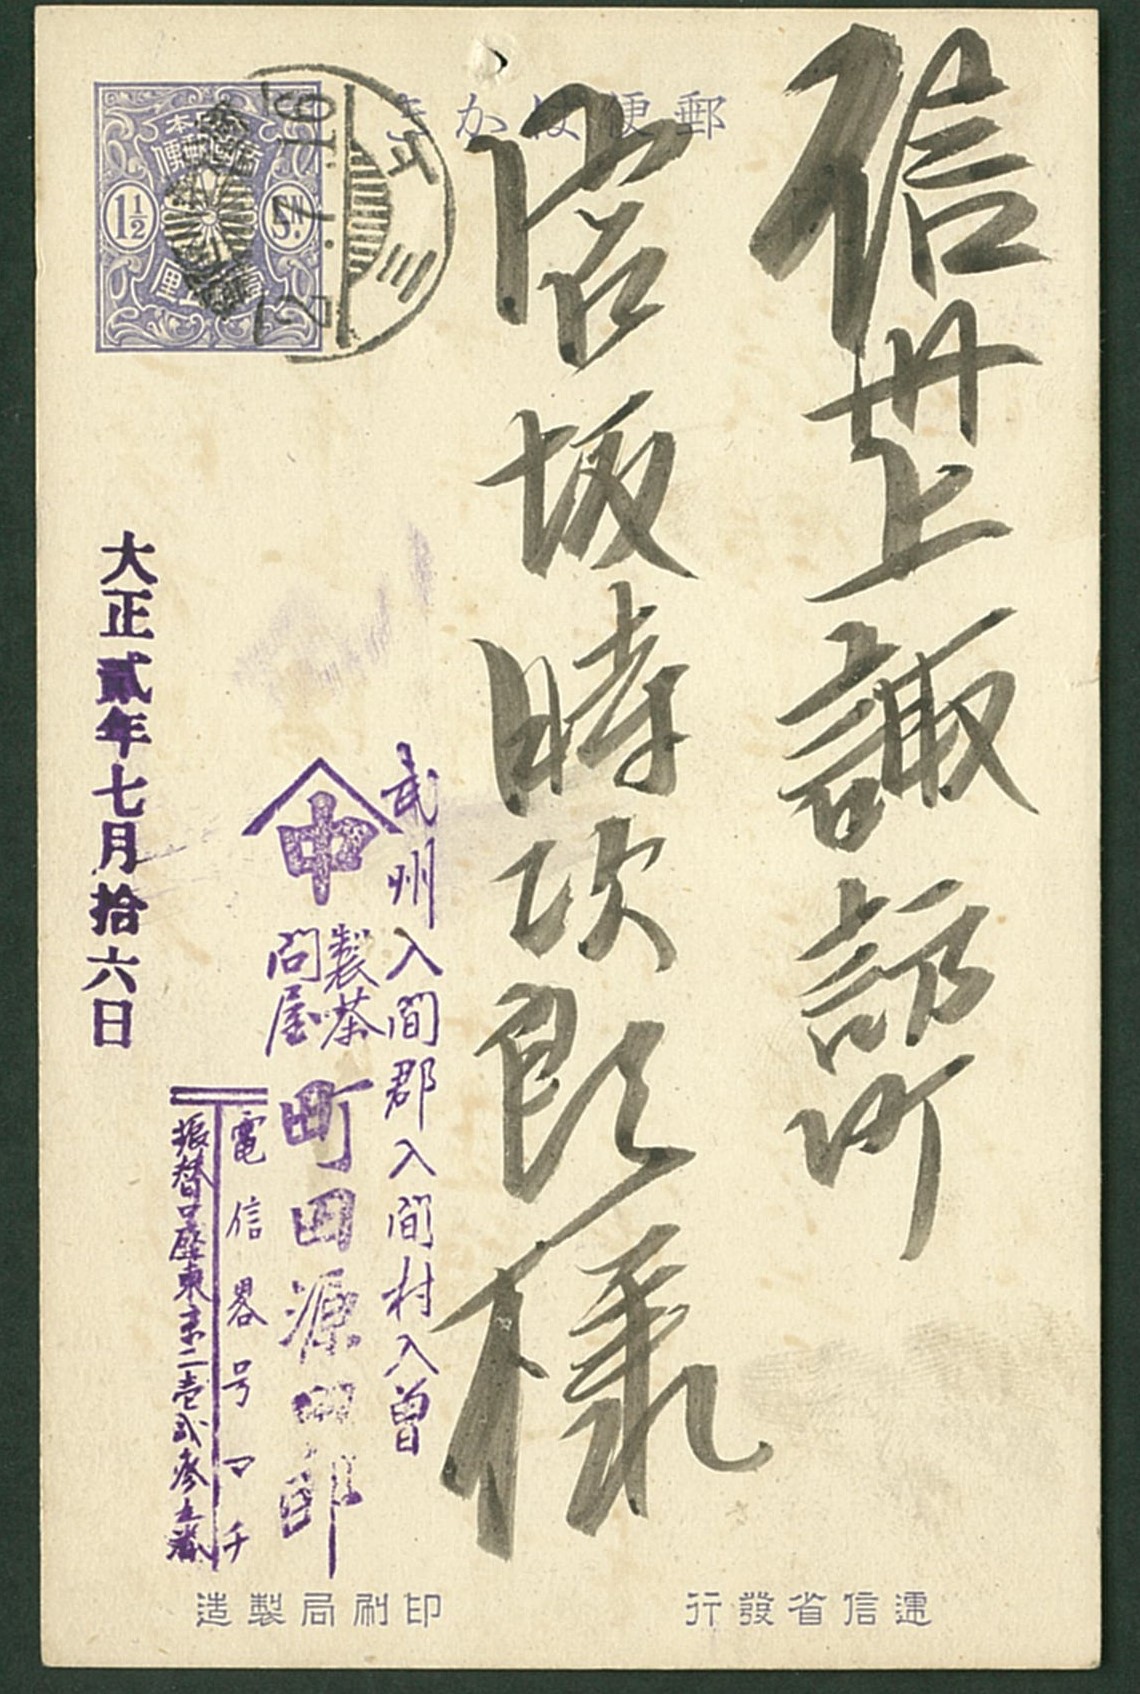 郵便はがき
大日本帝國郵便
1½ Sn.
壹錢五厘
2.7.16
信州上諏訪町
宮坂時次郎様
武州入間郡入間村入曽
中
製茶
問屋
町田源四郎
電信畧号マチ
振替口座東京二壱弐参五番
大正貳年七月拾六日
遞信省發行
印刷局製造